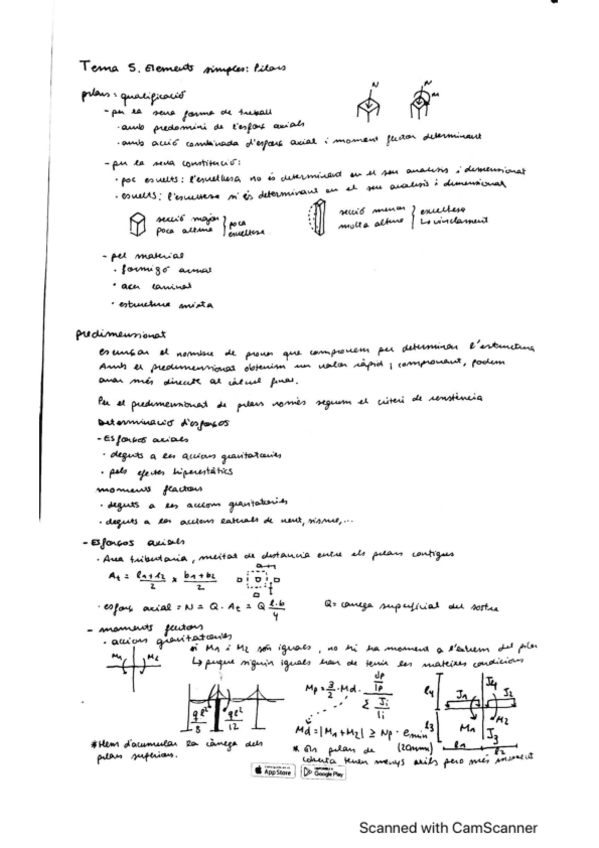 Tema 5. Elements simples: Pilars
pilars: qualificació
- per la seva forma de treball
· amb predomini de l'esforç axials
· amb acció combinada d'esforç axial i moment flector determinant
N
N
M
- per la seva constitució:
· poc esvelts: l'esveltesa no és determinant en el seu analisis i dimensionat
· esvelts: l'esveltesa si és determinant en el seu analisis i dimensionat
secció major
poca altura
poca
esveltesa
secció menor
molta altura
esveltesa
↳ vinclament
- pel material
· formigó armat
· acer laminat
· estructura mixta
predimensionat
escurçar el nombre de proves que comprovem per determinar l'estructura
Amb el predimensionat obtenim un valor ràpid, i comprovant, podem
anar més directe al càlcul final.
Per el predimensionat de pilars només seguim el criteri de resistència
Determinació d'esforços
- Esforços axials
· deguts a les accions gravitatories
· pels efectes hiperestàtics
moments flectors
· deguts a les accions gravitatories
· deguts a les accions laterals de vent, sismes,...
- Esforços axials
· Area tributaria, meitat de distancia entre els pilars contigus
At = l1+l2/2 × b1+b2/2
· esforç axial = N = Q · At = Q l·b/4
Q = càrrega superficial del sostre
- moments flectors
· accions gravitatories
si M1 i M2 són iguals, no hi ha moment a l'extrem del pilar
↳ perque siguin iguals han de tenir les mateixes condicions
M1
M2
ql²/8
ql²/12
Mp = 3/2 · Md · Jp/lp / Σ Ji/li
Md = |M1 + M2| ≥ Np · emin
(20mm)
l4
J4
J1
J2
M1
M2
l3
J3
l1
l2
* Hem d'acumular la càrrega dels
pilars superiors.
* els pilars de
coberta tenen menys axils pero més moment
App Store
Google Play
Scanned with CamScanner